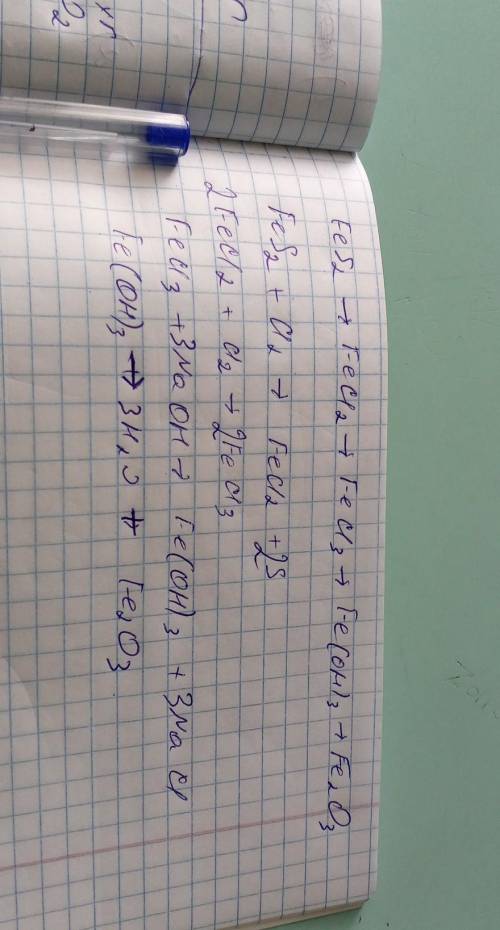 FeS₂ → FeCl₂ → FeCl₃ → Fe(OH)₃ → Fe₂O₃
FeS₂ + Cl₂ → FeCl₂ + 2S
2FeCl₂ + Cl₂ → 2FeCl₃
FeCl₃ + 3NaOH → Fe(OH)₃ + 3NaCl
Fe(OH)₃ → 3H₂O + Fe₂O₃